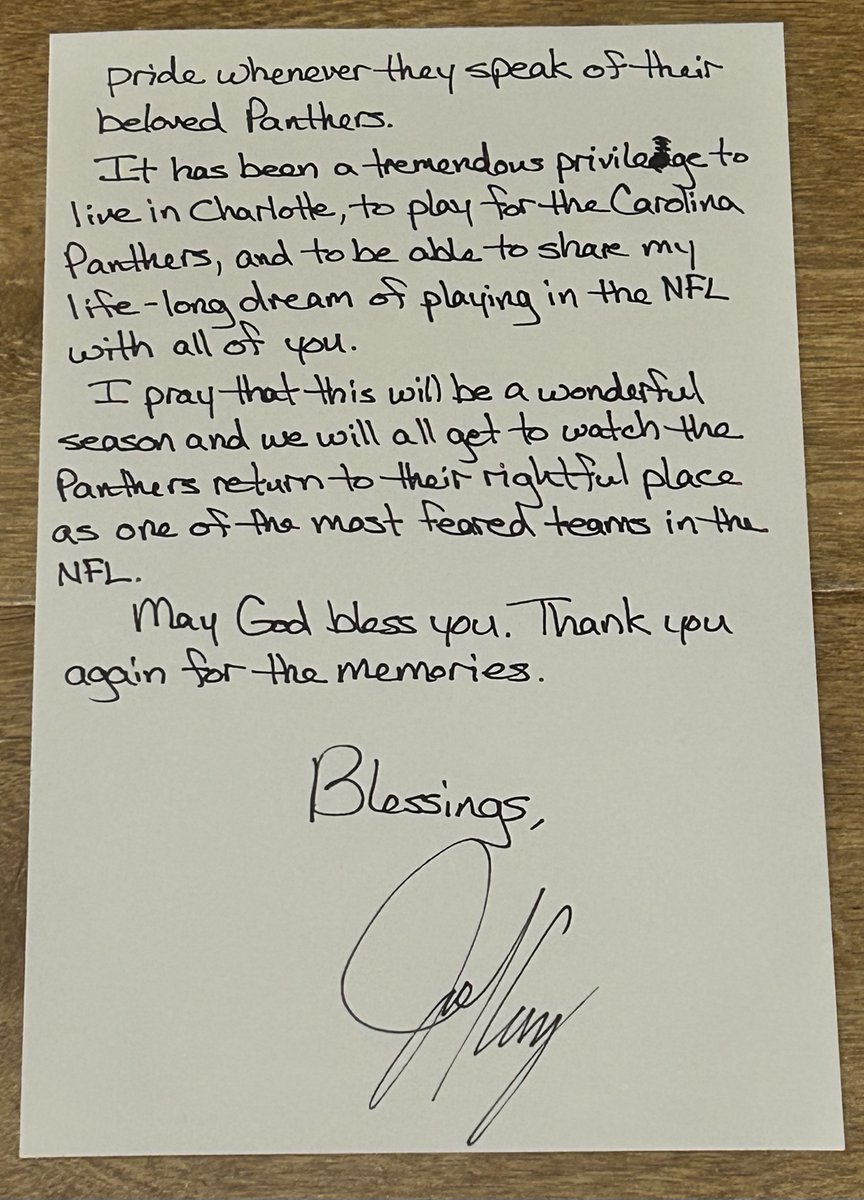 pride whenever they speak of their
beloved Panthers.
It has been a tremendous privilege to
live in Charlotte, to play for the Carolina
Panthers, and to be able to share my
life-long dream of playing in the NFL
with all of you.
I pray that this will be a wonderful
season and we will all get to watch the
Panthers return to their rightful place
as one of the most feared teams in the
NFL.
May God bless you. Thank you
again for the memories.
Blessings,